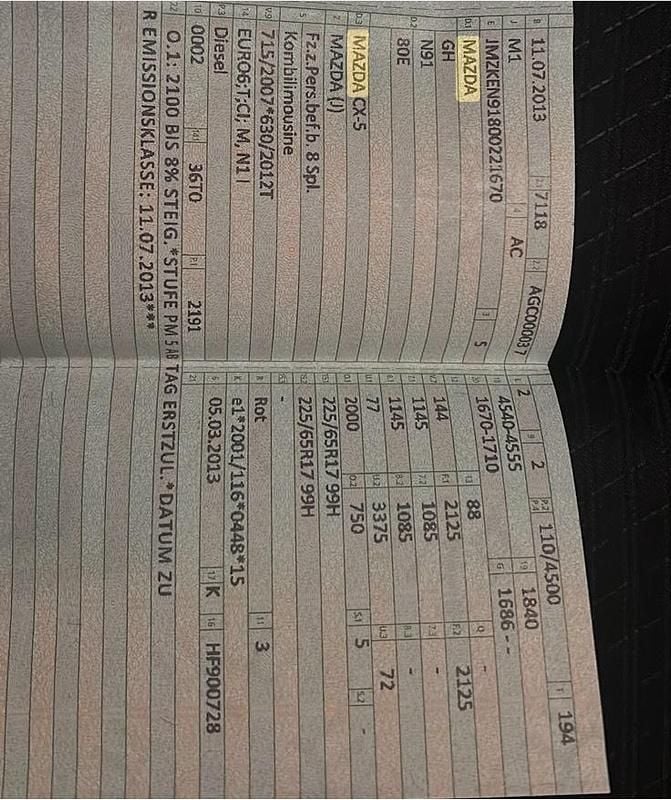 B 11.07.2013 2.1 7118 2.2 AGC000037
J M1 4 AC
E JMZKEN91800221670 3 5
D.1 MAZDA
GH
D.2 N91
80E
D.3 MAZDA CX-5
2 MAZDA (J)
5 Fz.z.Pers.bef.b. 8 Spl.
Kombilimousine
V.9 715/2007*630/2012T
14 EURO6;T;CI; M, N1 I
P.3 Diesel
10 0002 14.1 36T0 P.1 2191
22 O.1: 2100 BIS 8% STEIG.*STUFE PM 5 AB TAG ERSTZUL.*DATUM ZU
R EMISSIONSKLASSE: 11.07.2013***
L 2 9 2 P.2 P.4 110/4500 T 194
18 4540-4555 19 1840
20 1670-1710 G 1686 --
12 - 13 88 Q -
V.7 144 F.1 2125 F.2 2125
7.1 1145 7.2 1085 7.3 -
8.1 1145 8.2 1085 8.3 -
U.1 77 U.2 3375 U.3 72
O.1 2000 O.2 750 S.1 5 S.2 -
15.1 225/65R17 99H
15.2 225/65R17 99H
15.3 -
R Rot 11 3
K e1*2001/116*0448*15
6 05.03.2013 17 K 16 HF900728
21